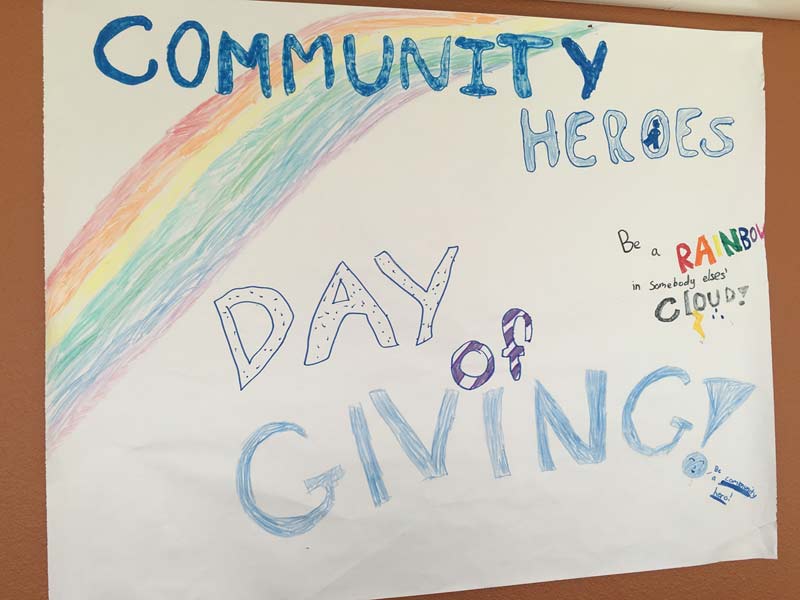 COMMUNITY
HEROES
Be a RAINBOW
in somebody elses'
CLOUD!
DAY
of
GIVING!
Be
a community
hero!